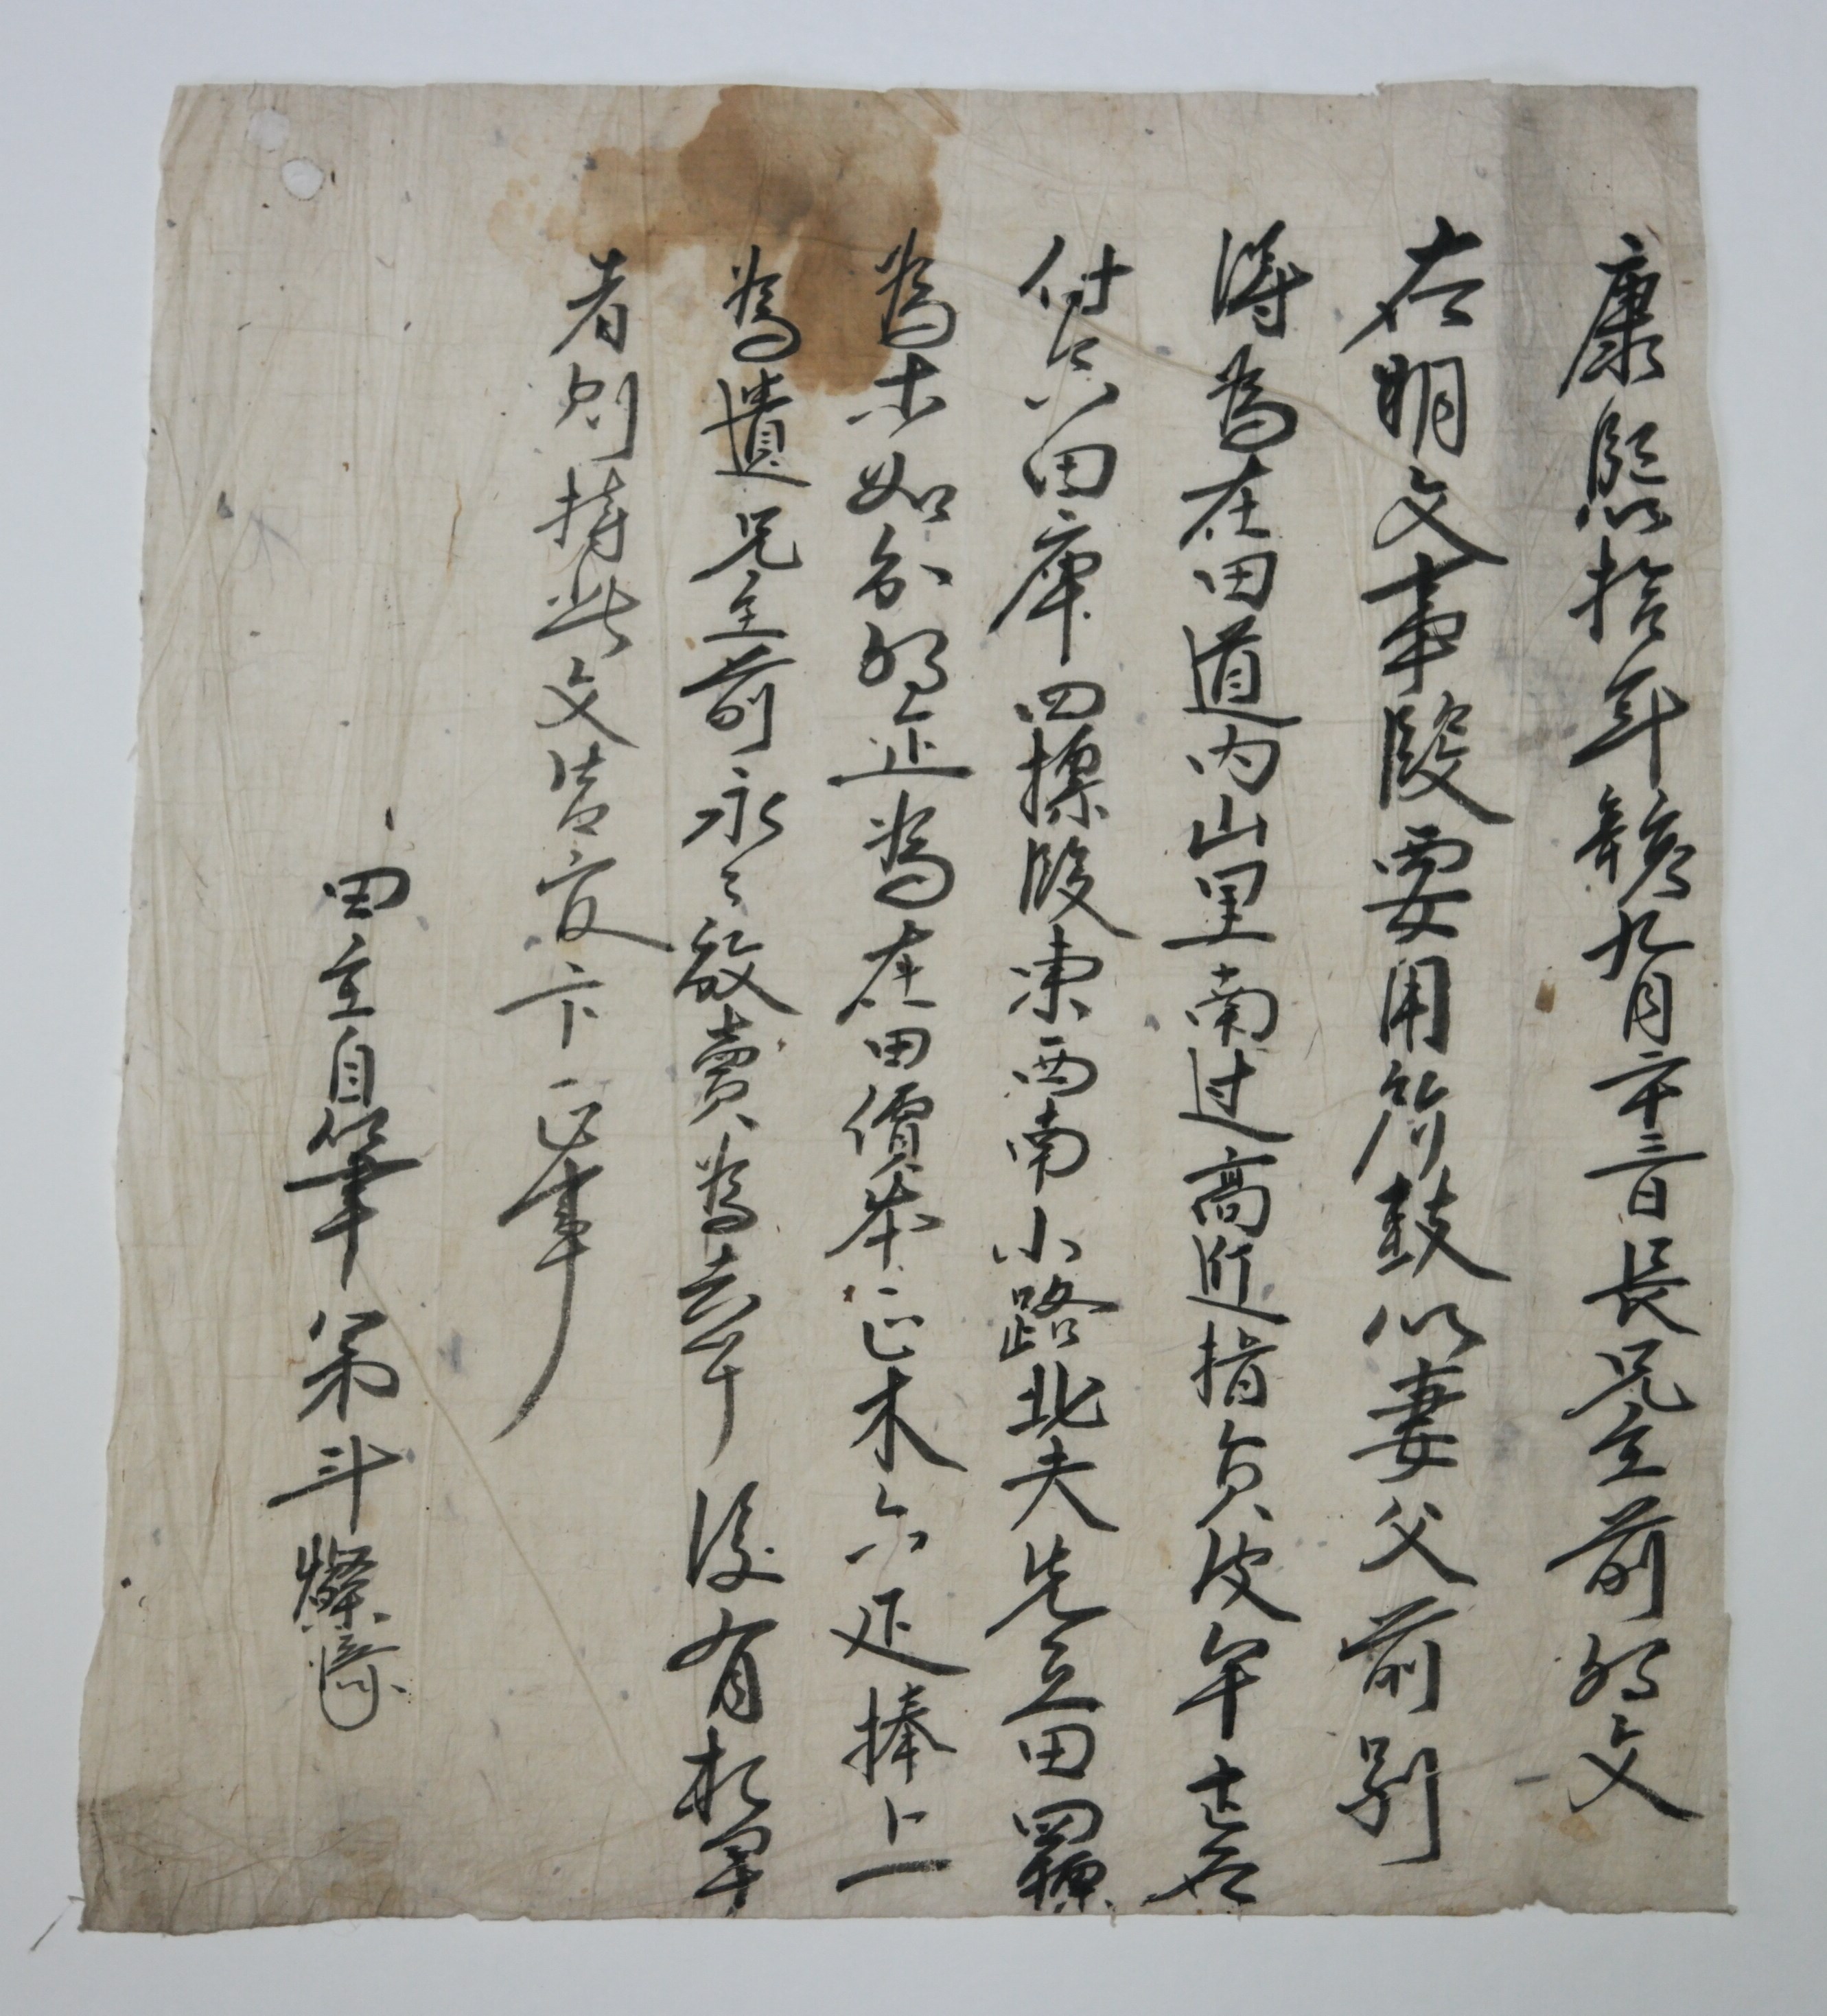 康熙拾年辛亥九月二十三日長兄主前明文
右明文事段要用所致以妻父前別
得爲在田道内山里南过高近指員皮牟十五石
付只田庫四標段東西南小路北夫先立田四標
爲木如分明是爲在田價本正木六疋捧上
爲遣兄主前永永放賣爲去乎後有相爭
者則持此文告官卞正事
田主自筆弟斗燦